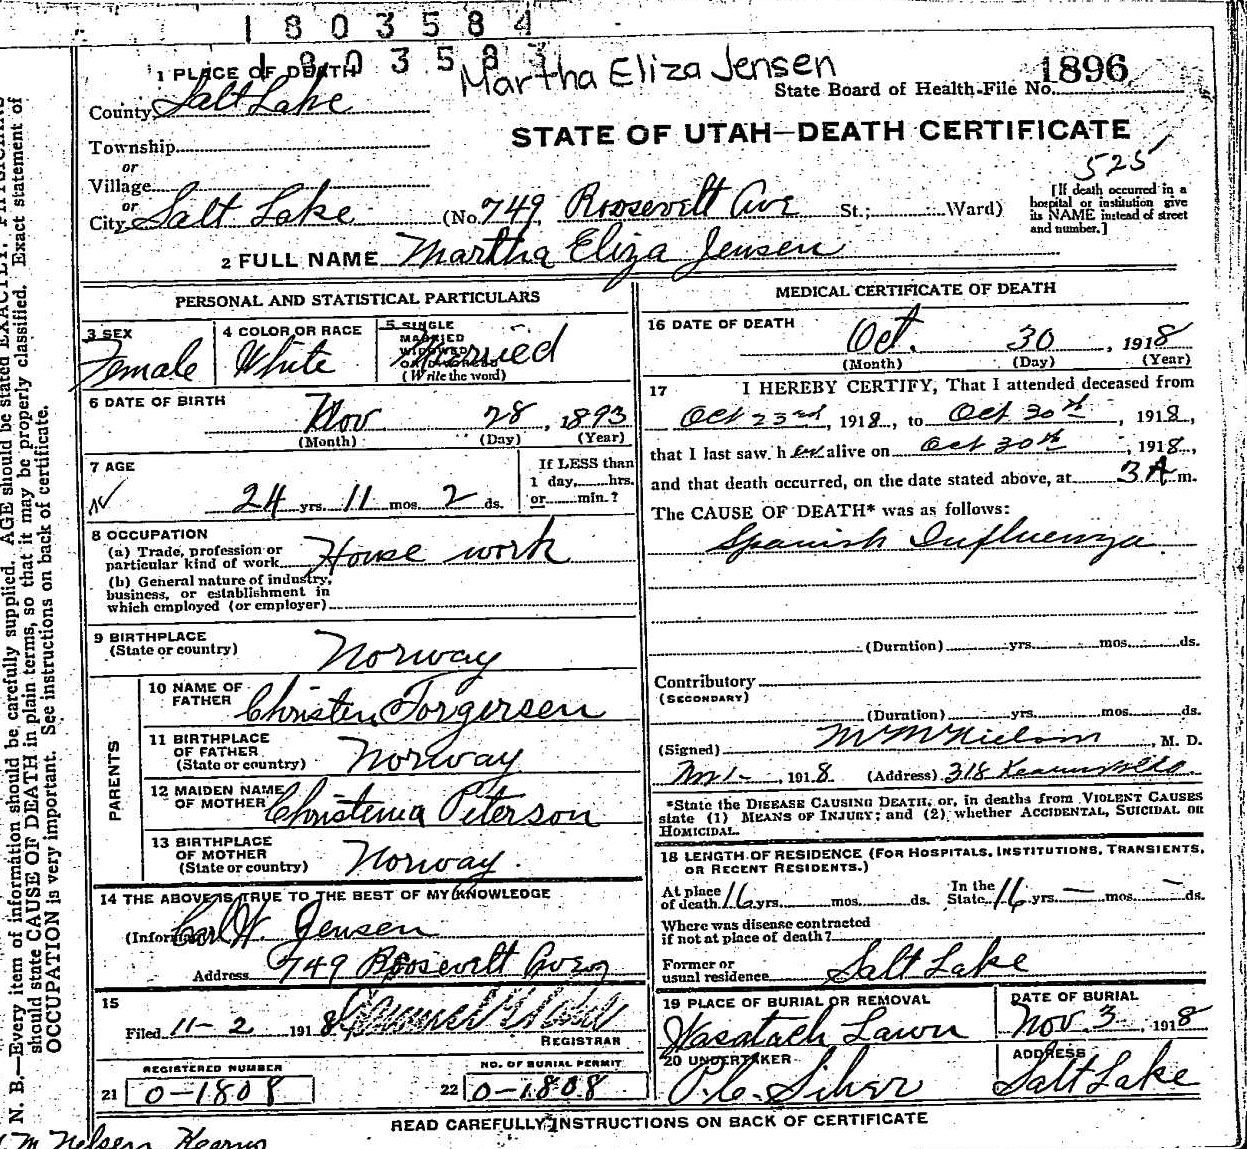 1803584
1803583
Martha Eliza Jensen
1896
1 PLACE OF DEATH
State Board of Health-File No.
County Salt Lake
STATE OF UTAH—DEATH CERTIFICATE
Township
or
525
Village
or
City Salt Lake (No. 749 Roosevelt Ave St.; Ward)
[If death occurred in a
hospital or institution give
its NAME instead of street
and number.]
2 FULL NAME Martha Eliza Jensen
PERSONAL AND STATISTICAL PARTICULARS
3 SEX
Female
4 COLOR OR RACE
White
5 SINGLE
MARRIED
WIDOWED
OR DIVORCED
Married
(Write the word)
6 DATE OF BIRTH
Nov 28, 1893
(Month) (Day) (Year)
7 AGE
24 yrs. 11 mos. 2 ds.
If LESS than
1 day, hrs.
or min.?
8 OCCUPATION
(a) Trade, profession or
particular kind of work House work
(b) General nature of industry,
business, or establishment in
which employed (or employer)
9 BIRTHPLACE
(State or country) Norway
PARENTS
10 NAME OF
FATHER Christen Torgersen
11 BIRTHPLACE
OF FATHER
(State or country) Norway
12 MAIDEN NAME
OF MOTHER Christenia Peterson
13 BIRTHPLACE
OF MOTHER
(State or country) Norway.
14 THE ABOVE IS TRUE TO THE BEST OF MY KNOWLEDGE
(Informant) Carl W. Jensen
Address 749 Roosevelt Ave
15
Filed 11-2 1918
REGISTRAR
REGISTERED NUMBER
21 0-1808
NO. OF BURIAL PERMIT
22 0-1808
MEDICAL CERTIFICATE OF DEATH
16 DATE OF DEATH
Oct. 30, 1918
(Month) (Day) (Year)
17 I HEREBY CERTIFY, That I attended deceased from
Oct 23rd, 1918, to Oct 30th, 1918,
that I last saw h er alive on Oct 30th, 1918,
and that death occurred, on the date stated above, at 3 A m.
The CAUSE OF DEATH* was as follows:
Spanish Influenza
(Duration) yrs. mos. ds.
Contributory
(SECONDARY)
(Duration) yrs. mos. ds.
(Signed) M M Nielson, M. D.
Nov 1-, 1918 (Address) 318 Kearns Bldg
*State the DISEASE CAUSING DEATH, or, in deaths from VIOLENT CAUSES
state (1) MEANS OF INJURY; and (2) whether ACCIDENTAL, SUICIDAL OR
HOMICIDAL.
18 LENGTH OF RESIDENCE (FOR HOSPITALS, INSTITUTIONS, TRANSIENTS,
OR RECENT RESIDENTS.)
At place
of death 16 yrs. mos. ds.
In the
State 16 yrs. — mos. — ds.
Where was disease contracted
if not at place of death?
Former or
usual residence Salt Lake
19 PLACE OF BURIAL OR REMOVAL
Wasatach Lawn
DATE OF BURIAL
Nov. 3, 1918
20 UNDERTAKER
ADDRESS
Salt Lake
READ CAREFULLY INSTRUCTIONS ON BACK OF CERTIFICATE
N. B.—Every item of information should be carefully supplied. AGE should be stated EXACTLY. PHYSICIANS
should state CAUSE OF DEATH in plain terms, so that it may be properly classified. Exact statement of
OCCUPATION is very important. See instructions on back of certificate.
M Nelsen Kearns